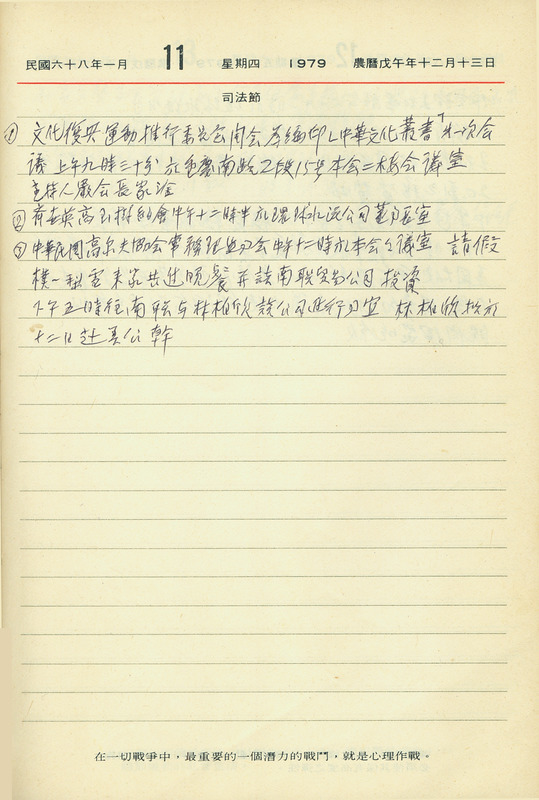 民國六十八年一月 11 星期四 1979 農曆戊午年十二月十三日
司法節
① 文化復興運動推行委員會開會為編印「中華文化叢書」第一次會
議 上午九時三十分 於重慶南路二段15號本會二樓會議室
主持人嚴會長家淦
② 高玉樹約會中午十二時半於環球水泥公司董事室
③ 中華民國高爾夫協會常務理監事會中午十二時於本會會議室 請假
樸一 來家共進晚餐 并談南聯貿易公司投資
下午五時往南聯與林柏欣談公司進行事宜 林柏欣擬於
十二日赴美公幹
在一切戰爭中，最重要的一個潛力的戰鬥，就是心理作戰。